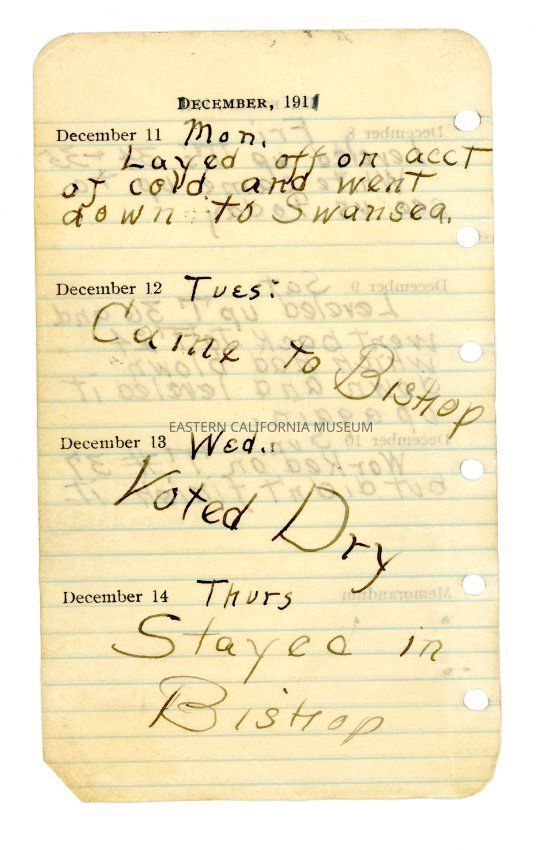 DECEMBER, 1911
December 11 Mon.
Layed off on acct
of cold and went
down to Swansea.
December 12 Tues:
Came to Bishop
EASTERN CALIFORNIA MUSEUM
December 13 Wed.:
Voted Dry
December 14 Thurs
Stayed in
Bishop